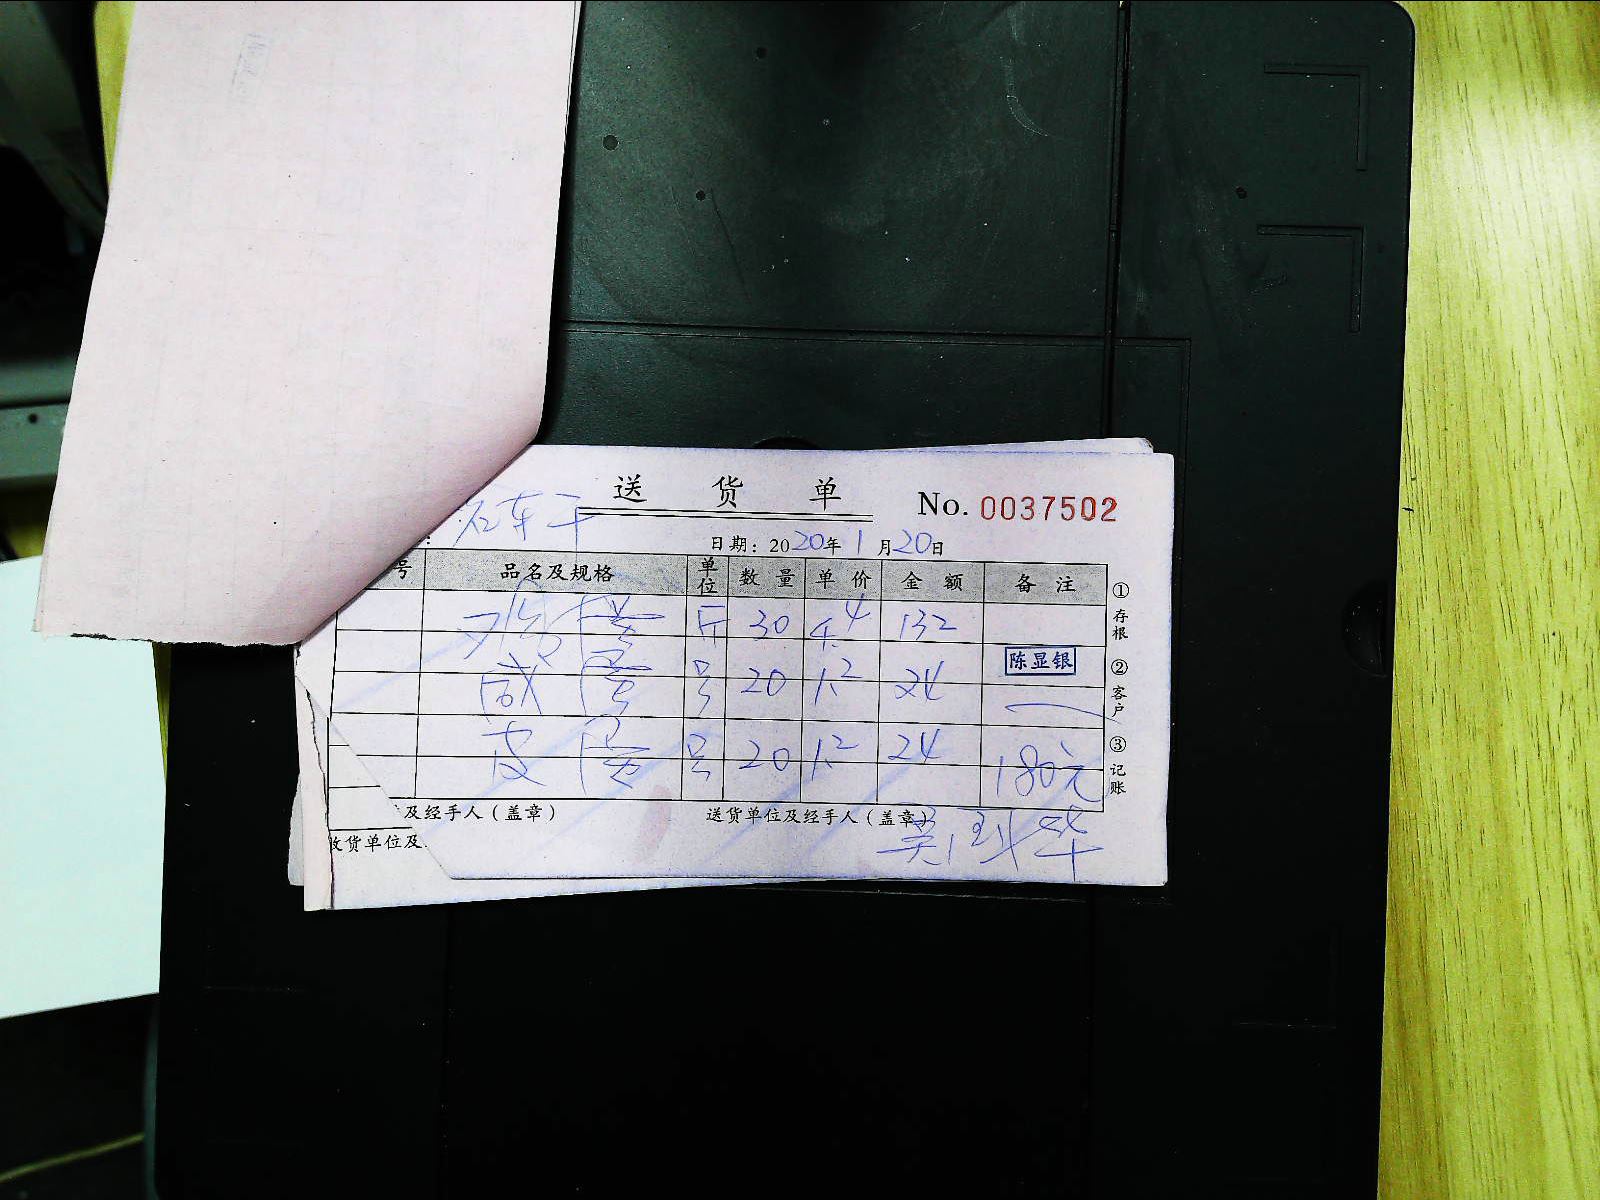 送 货 单
No. 0037502
日期：2020年1月20日
号 品名及规格 单位 数量 单价 金额 备注
鸡蛋 斤 30 4.4 132
咸蛋 号 20 1.2 24
皮蛋 号 20 1.2 24
陈显银
180元
①存根 ②客户 ③记账
及经手人（盖章） 送货单位及经手人（盖章）
收货单位及